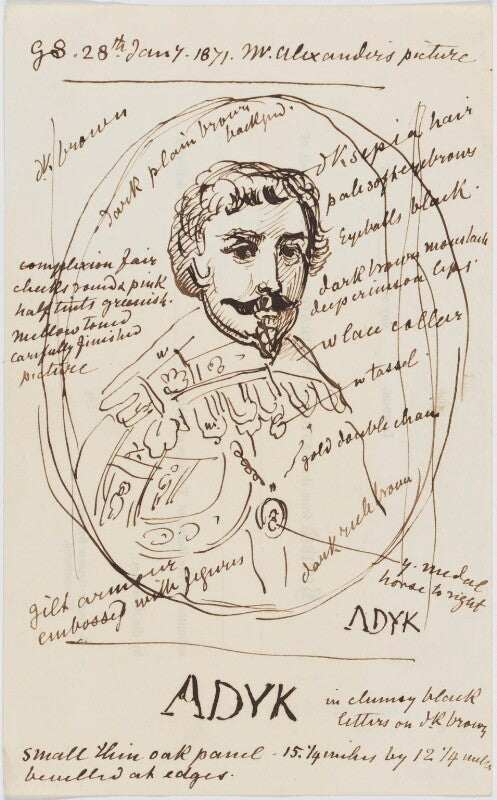 GS. 28th Jany. 1871. Mr. Alexander's picture
dk brown
dark plain brown
backgrd.
dk sepia hair
pale soft eyebrows
Eyeballs black.
complexion fair
cheeks round & pink
half tints greenish.
Mellow toned
carefully finished
picture
dark brown moustach
deep crimson lips.
w lace collar
w tassel.
w
w
gold double chain
dark brown
y. medal
horse to right
gilt armour
embossed with figures
ADYK
ADYK
in clumsy black
letters on dk brown
Small thin oak panel - 15.1/4 inches by 12 1/4 inches
bevilled at edges.